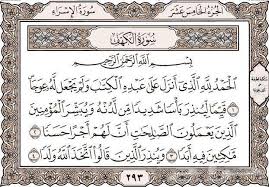 سُورَةُ الإِسْرَاءِ
الجُزْءُ الخَامِسَ عَشَرَ
سُورَةُ الكَهْفِ
بِسْمِ اللَّهِ الرَّحْمَٰنِ الرَّحِيمِ
الْحَمْدُ لِلَّهِ الَّذِي أَنزَلَ عَلَىٰ عَبْدِهِ الْكِتَٰبَ وَلَمْ يَجْعَل لَّهُ عِوَجَا ۜ
١ قَيِّمًا لِّيُنذِرَ بَأْسًا شَدِيدًا مِّن لَّدُنْهُ وَيُبَشِّرَ الْمُؤْمِنِينَ
الَّذِينَ يَعْمَلُونَ الصَّٰلِحَٰتِ أَنَّ لَهُمْ أَجْرًا حَسَنًا ٢
مَّٰكِثِينَ فِيهِ أَبَدًا ٣ وَيُنذِرَ الَّذِينَ قَالُوا اتَّخَذَ اللَّهُ وَلَدًا ٤
٢٩٣